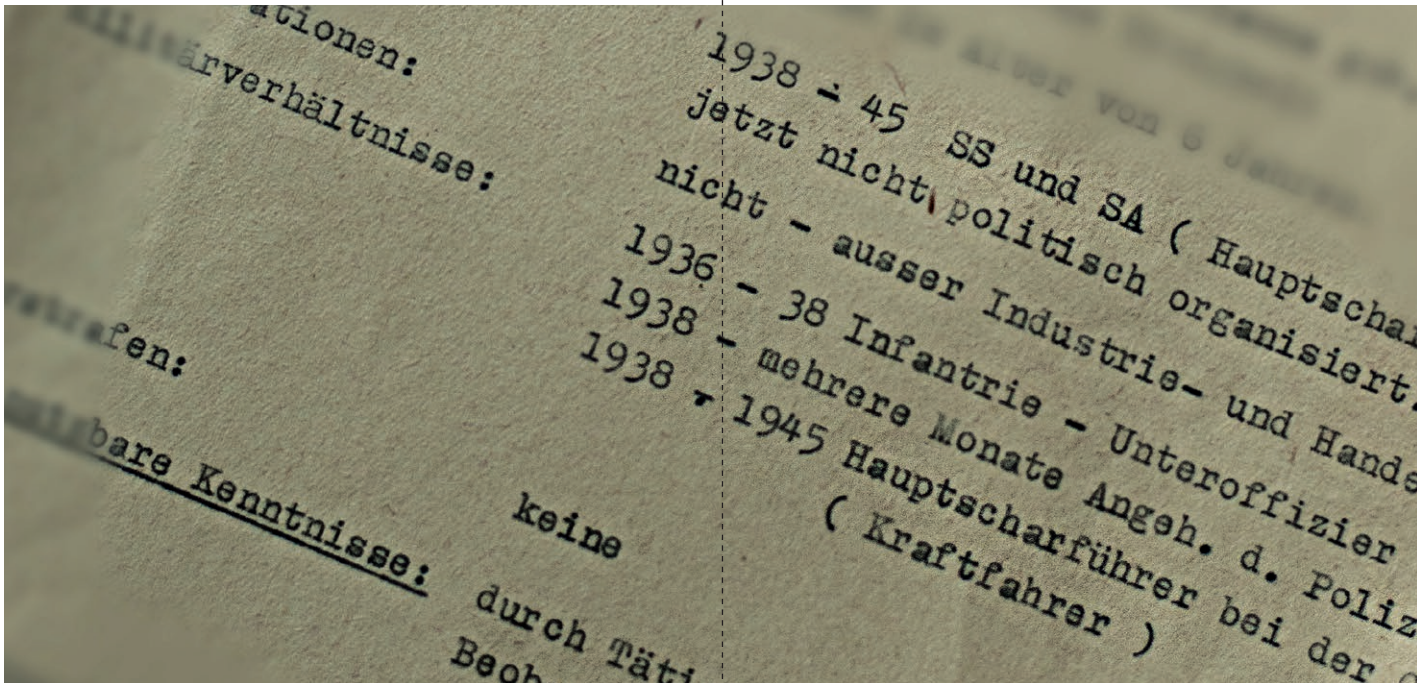 Alter von 6
1938 - 45 SS und SA ( Hauptschar
jetzt nicht politisch organisiert.
ationen: nicht - ausser Industrie- und Hande
militärverhältnisse: 1936 - 38 Infantrie - Unteroffizier
1938 - mehrere Monate Angeh. d. Poliz
1938 - 1945 Hauptscharführer bei der
( Kraftfahrer )
strafen: keine
bare Kenntnisse: durch Täti
Beob